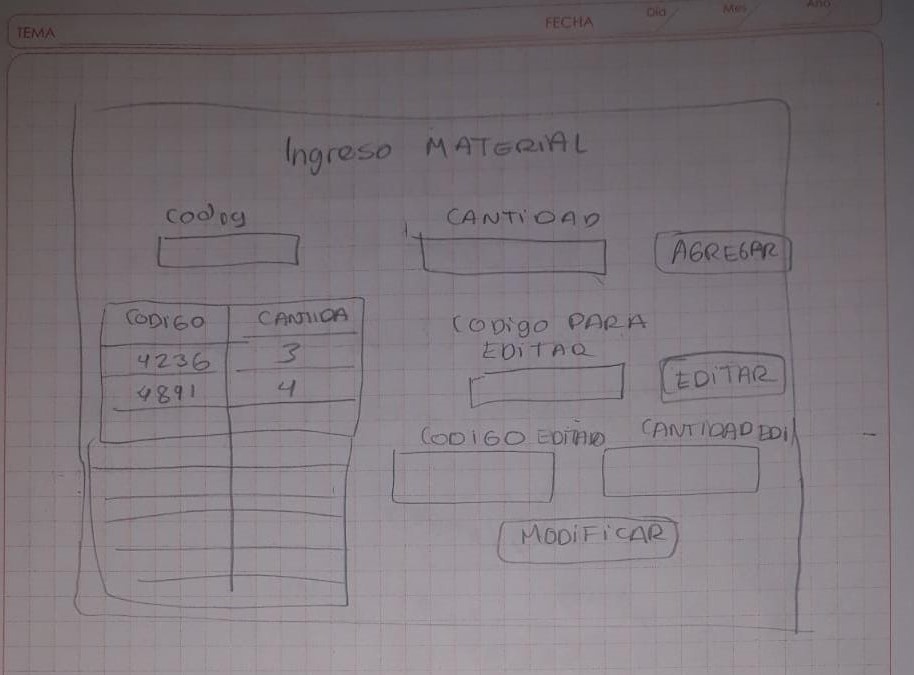 TEMA
FECHA
Día
Mes
Año
Ingreso MATERIAL
CANTIDAD
AGREGAR
CODIGO
CANTIDA
4236
3
4891
4
CODigo PARA
EDITAR
EDITAR
CODIGO EDITADO
CANTIDAD EDI
MODIFICAR